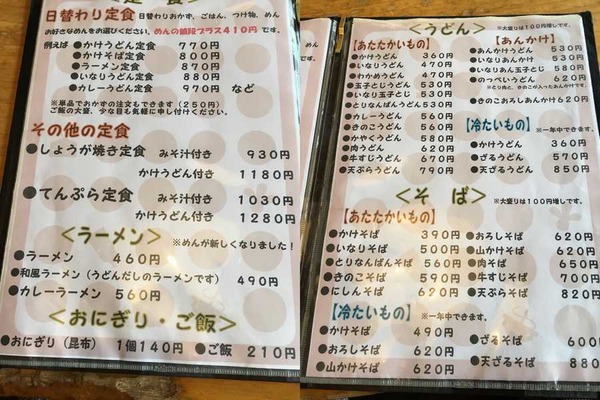 定食
日替わり定食 日替わりおかず、ごはん、つけ物、めん
お好きなめんをお選びください。めんの値段プラス410円です。
例えば ●かけうどん定食 770円
●かけそば定食 800円
●ラーメン定食 870円
●いなりうどん定食 880円
●カレーうどん定食 970円 など
※単品でおかずの注文もできます(250円)
ご飯の大盛、少な目も気軽に申し付けください。
その他の定食
●しょうが焼き定食 みそ汁付き 930円
かけうどん付き 1180円
●てんぷら定食 みそ汁付き 1030円
かけうどん付き 1280円
<ラーメン> ※めんが新しくなりました!
●ラーメン 460円
●和風ラーメン(うどんだしのラーメンです) 490円
●カレーラーメン 560円
<おにぎり・ご飯>
●おにぎり(昆布) 1個140円 ●ご飯 210円
<うどん> ※大盛りは100円増しです。
【あたたかいもの】
●かけうどん 360円
●いなりうどん 470円
●わかめうどん 470円
●玉子とじうどん 530円
●いなり玉子とじ 530円
●とりなんばんうどん 530円
●カレーうどん 560円
●きのこうどん 560円
●かやくうどん 580円
●肉うどん 620円
●牛すじうどん 670円
●天ぷらうどん 790円
【あんかけ】
●あんかけうどん 530円
●いなりあんかけ 530円
●いなりあん玉子とじ 580円
●のっぺいうどん 620円
※とり肉と、きのこが入ったあんかけです
●きのこおろしあんかけ 620円
【冷たいもの】 ※一年中できます。
●かけうどん 360円
●ざるうどん 570円
●天ざるうどん 850円
<そば> ※大盛りは100円増しです。
【あたたかいもの】
●かけそば 390円
●いなりそば 500円
●とりなんばんそば 560円
●きのこそば 590円
●にしんそば 620円
●おろしそば 620円
●山かけそば 620円
●肉そば 650円
●牛すじそば 700円
●天ぷらそば 820円
【冷たいもの】 ※一年中できます。
●かけそば 490円
●おろしそば 620円
●山かけそば 620円
●ざるそば 600円
●天ざるそば 880